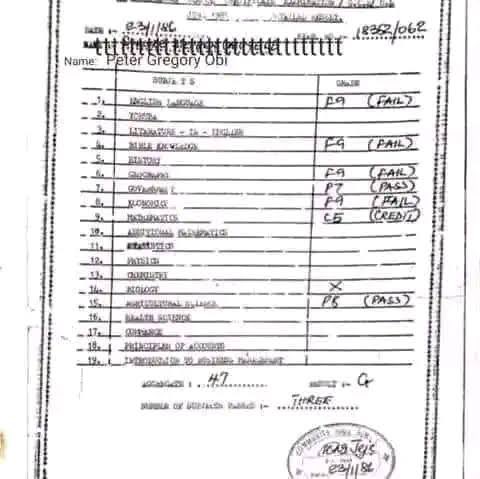 DATE :- 23/1/86
18352/062
Name: Peter Gregory Obi
SUBJECTS GRADE
1. ENGLISH LANGUAGE F9 (FAIL)
2. YORUBA
3. LITERATURE - IN - ENGLISH
4. BIBLE KNOWLEDGE F9 (FAIL)
5. HISTORY
6. GEOGRAPHY F9 (FAIL)
7. GOVERNMENT P7 (PASS)
8. ECONOMICS F9 (FAIL)
9. MATHEMATICS C5 (CREDIT)
10. ADDITIONAL MATHEMATICS
11.
12. PHYSICS
13. CHEMISTRY
14. BIOLOGY X
15. AGRICULTURAL SCIENCE P8 (PASS)
16. HEALTH SCIENCE
17. COMMERCE
18. PRINCIPLES OF ACCOUNTS
19. INTRODUCTION TO BUSINESS MANAGEMENT
AGGREGATE : 47 RESULT :- G
NUMBER OF SUBJECTS PASSED :- THREE
23/1/86